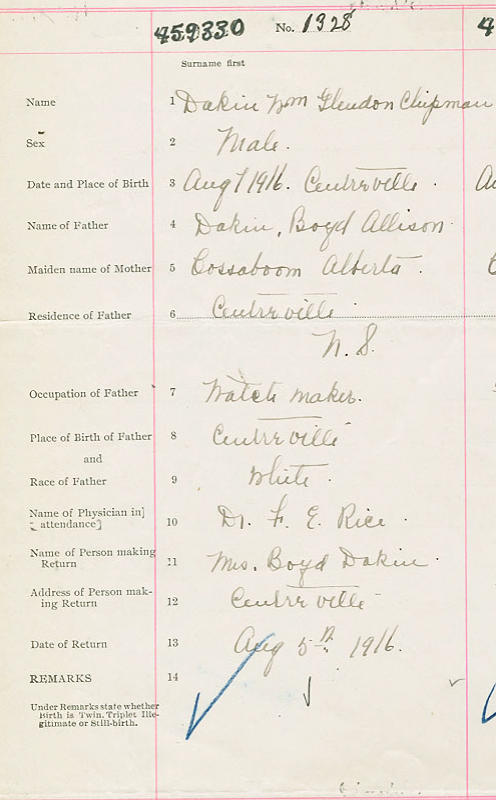 459330 No. 1328
Surname first
Name 1 Dakin Wm Glendon Chipman
Sex 2 Male.
Date and Place of Birth 3 Aug 1 1916. Centreville.
Name of Father 4 Dakin, Boyd Allison
Maiden name of Mother 5 Cossaboom Alberta.
Residence of Father 6 Centreville
N.S.
Occupation of Father 7 Watch maker.
Place of Birth of Father 8 Centreville
and
Race of Father 9 White.
Name of Physician in
attendance 10 Dr. F. E. Rice.
Name of Person making
Return 11 Mrs. Boyd Dakin.
Address of Person mak-
ing Return 12 Centreville
Date of Return 13 Aug 5th 1916.
REMARKS 14
Under Remarks state whether
Birth is Twin, Triplet Ille-
gitimate or Still-birth.